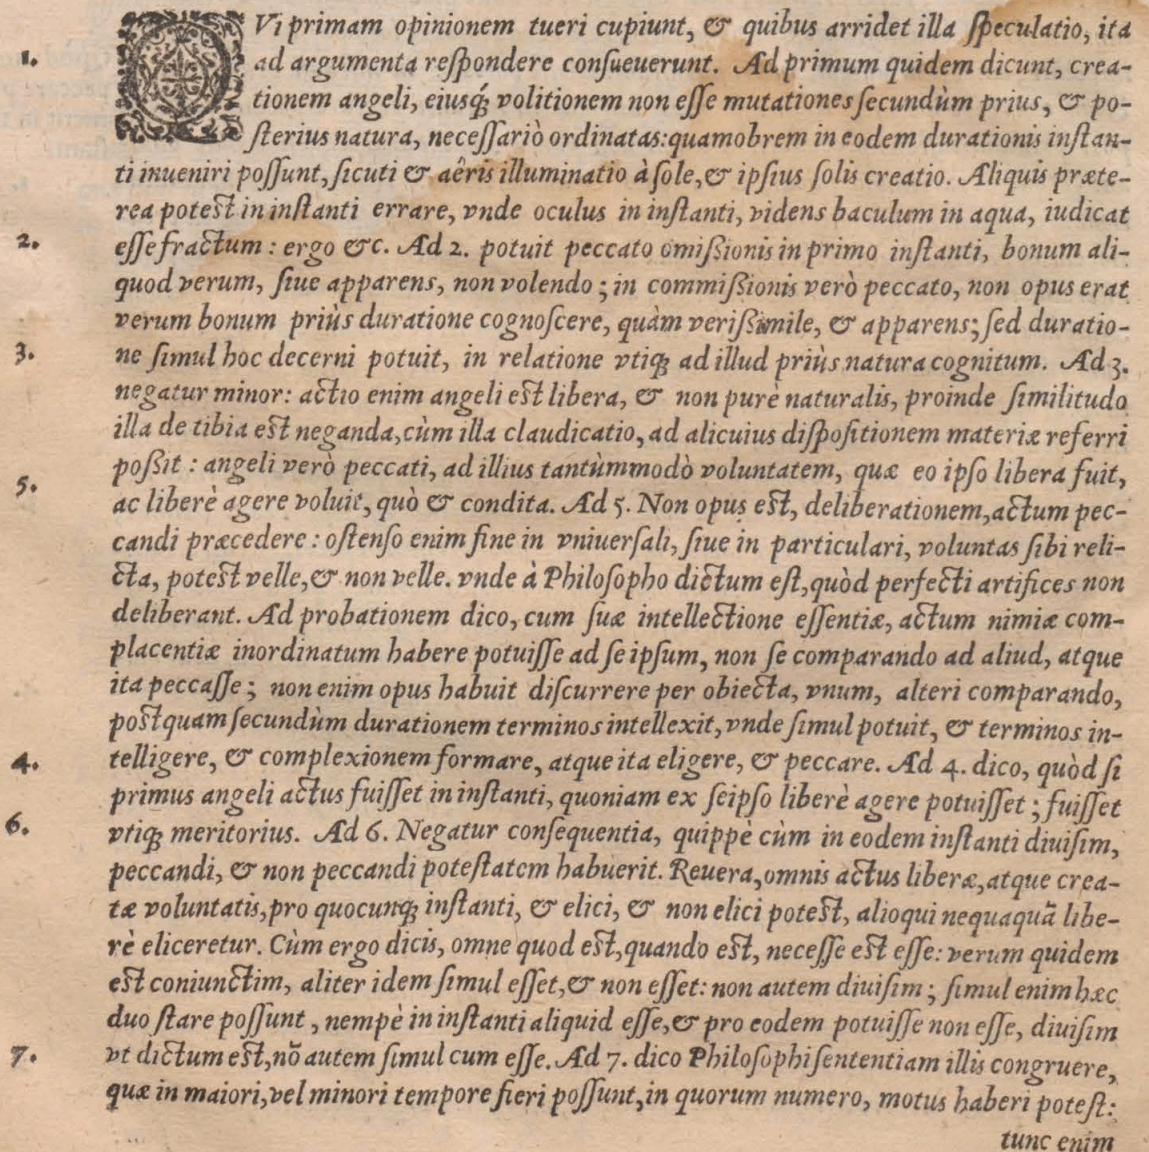 QVi primam opinionem tueri cupiunt, & quibus arridet illa speculatio, ita
1. ad argumenta respondere consueuerunt. Ad primum quidem dicunt, crea-
tionem angeli, eiusq́; volitionem non esse mutationes secundùm prius, & po-
sterius natura, necessariò ordinatas: quamobrem in eodem durationis instan-
ti inueniri possunt, sicuti & aëris illuminatio à sole, & ipsius solis creatio. Aliquis præte-
rea potest in instanti errare, vnde oculus in instanti, videns baculum in aqua, iudicat
2. esse fractum: ergo &c. Ad 2. potuit peccato omißionis in primo instanti, bonum ali-
quod verum, siue apparens, non volendo; in commißionis verò peccato, non opus erat
verum bonum priùs duratione cognoscere, quàm verißimile, & apparens; sed duratio-
3. ne simul hoc decerni potuit, in relatione vtiq; ad illud priùs natura cognitum. Ad 3.
negatur minor: actio enim angeli est libera, & non purè naturalis, proinde similitudo
illa de tibia est neganda, cùm illa claudicatio, ad alicuius dispositionem materiæ referri
poßit: angeli verò peccati, ad illius tantùmmodò voluntatem, quæ eo ipso libera fuit,
5. ac liberè agere voluit, quò & condita. Ad 5. Non opus est, deliberationem, actum pec-
candi præcedere: ostenso enim fine in vniuersali, siue in particulari, voluntas sibi reli-
cta, potest velle, & non velle. vnde à Philosopho dictum est, quòd perfecti artifices non
deliberant. Ad probationem dico, cum suæ intellectione essentiæ, actum nimiæ com-
placentiæ inordinatum habere potuisse ad se ipsum, non se comparando ad aliud, atque
ita peccasse; non enim opus habuit discurrere per obiecta, vnum, alteri comparando,
postquam secundùm durationem terminos intellexit, vnde simul potuit, & terminos in-
4. telligere, & complexionem formare, atque ita eligere, & peccare. Ad 4. dico, quòd si
primus angeli actus fuisset in instanti, quoniam ex seipso liberè agere potuisset; fuisset
6. vtiq; meritorius. Ad 6. Negatur consequentia, quippè cùm in eodem instanti diuisim,
peccandi, & non peccandi potestatem habuerit. Reuera, omnis actus liberæ, atque crea-
tæ voluntatis, pro quocunq; instanti, & elici, & non elici potest, alioqui nequaquã libe-
rè eliceretur. Cùm ergo dicis, omne quod est, quando est, necesse est esse: verum quidem
est coniunctim, aliter idem simul esset, & non esset: non autem diuisim; simul enim hæc
duo stare possunt, nempè in instanti aliquid esse, & pro eodem potuisse non esse, diuisim
7. vt dictum est, nõ autem simul cum esse. Ad 7. dico Philosophi sententiam illis congruere,
quæ in maiori, vel minori tempore fieri possunt, in quorum numero, motus haberi potest:
tunc enim